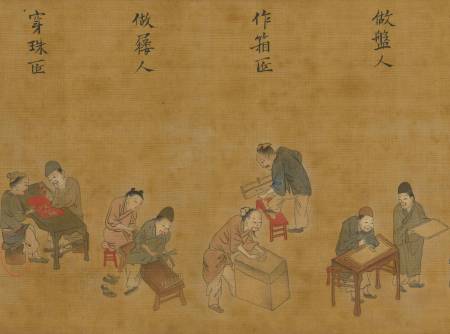 做盤人
作箱匠
做人
穿珠匠